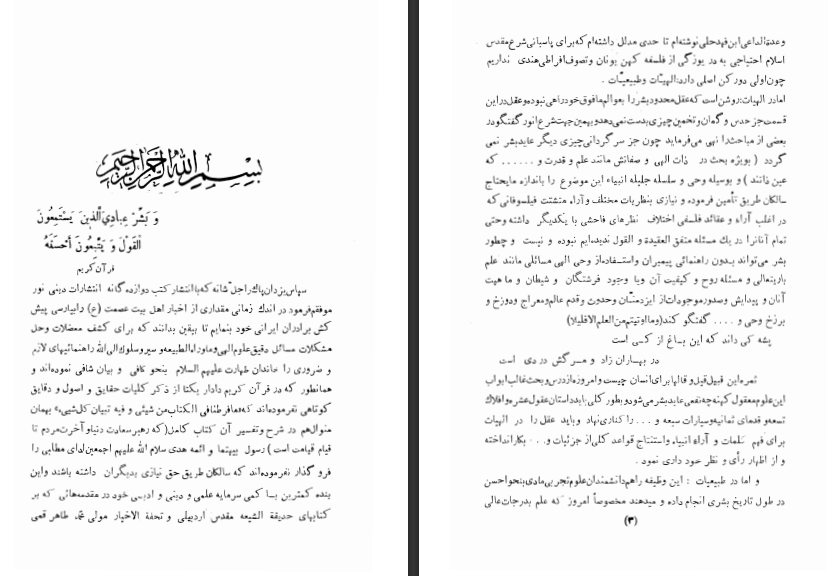 بسم الله الرحمن الرحیم
وَ بَشِّرْ عِبادِيَ الَّذينَ يَسْتَمِعُونَ
الْقَوْلَ وَ يَتَّبِعُونَ أَحْسَنَهُ
قرآن کریم
سپاس یزدان پاک را جل شانه که با انتشار کتب دوازده گانه انتشارات دینی نور
موفقم فرمود در اندک زمانی مقداری از اخبار اهل بیت عصمت (ع) را بپارسی پیش
کش برادران ایرانی خود بنمایم تا بیقین بدانند که برای کشف معضلات وحل
مشکلات مسائل دقیق علوم الهی و ماوراء الطبیعه و سیر و سلوک الی الله راهنمائیهای لازم
و ضروری را خاندان طهارت علیهم السلام بنحو کافی و بیان شافی نموده اند و
همانطور که در قرآن کریم دادار یکتا از ذکر کلیات حقایق و اصول و دقایق
کوتاهی نفرموده اند که مافرطنا فی الکتاب من شیئی و فیه تبیان کل شیء بهمان
منوال هم در شرح و تفسیر آن کتاب کامل (که رهبر سعادت دنیا و آخرت مردم تا
قیام قیامت است) رسول بیهمتا و ائمه هدی سلام الله علیهم اجمعین ادای مطالبی را
فرو گذار نفرموده اند که سالکان طریق حق نیازی بدیگران داشته باشند واین
بنده کمترین با کمی سرمایه علمی و دینی و ادبی خود در مقدمه هائی که بر
کتابهای حدیقة الشیعه مقدس اردبیلی و تحفة الاخیار مولی محمد طاهر قمی
وعدة الداعی ابن فهد حلی نوشته ام تا حدی مدلل داشته ام که برای پاسبانی شرع مقدس
اسلام احتیاجی به در یوزگی از فلسفه کهن یونان وتصوف افراطی هندی نداریم
چون اولی دور کن اصلی دارد: الهیّات وطبیعیّات .
اما در الهیات: روشن است که عقل محدود بشر را بعوالم مافوق خود راهی نبوده و عقل در این
قسمت جز حدس و گمان و تخمین چیزی بدست نمی دهد و بهمین جهت شرع انور گفتگو در
بعضی از مباحث را نهی می فرماید چون جز سر گردانی چیزی دیگر عاید بشر نمی
گردد ( بویژه بحث در ذات الهی و صفاتش مانند علم و قدرت و ...... که
عین ذاتند ) و بوسیله وحی و سلسله جلیله انبیاء این موضوع را باندازه مایحتاج
سالکان طریق تأمین فرموده و نیازی بنظریات مختلف و آراء متشتت فیلسوفانی که
در اغلب آراء و عقائد فلسفی اختلاف نظرهای فاحشی با یکدیگر داشته وحتی
تمام آنانرا در یک مسئله متفق العقیدة و القول ندیده ایم نبوده و نیست و چطور
بشر می تواند بدون راهنمائی پیمبران واستفاده از وحی الهی مسائلی مانند علم
باریتعالی و مسئله روح و کیفیت آن ویا وجود فرشتگان و شیطان و ماهیت
آنان و پیدایش وصدور موجودات از ایزد منّان وحدوث وقدم عالم و معراج ودوزخ و
برزخ وحی و .... گفتگو کند (وما اوتیتم من العلم الا قلیلا)
پشه کی داند که این باغ از کی است
در بهاران زاد و مرگش در دی است
ثمره این قبیل قیل و قالها برای انسان چیست و امروزه از درس و بحث غالب ابواب
این علوم معقول کهنه چه نفعی عاید بشر می شود و بطور کلی باید داستان عقول عشره و افلاک
تسعه و قدمای ثمانیه وسیارات سبعه و ... را کناری نهاد و باید عقل را در الهیات
برای فهم کلمات و آراء انبیاء واستنتاج قواعد کلی از جزئیات و ... بکار انداخته
و از اظهار رأی و نظر خود داری نمود .
و اما در طبیعیات : این وظیفه را هم دانشمندان علوم تجربی مادی بنحو احسن
در طول تاریخ بشری انجام داده و میدهند مخصوصاً امروز که علم بدرجات عالی
(۳)